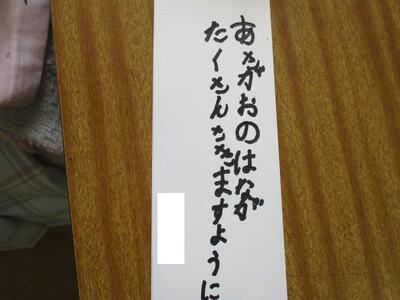 あさがおのはなが
たくさんさきますように